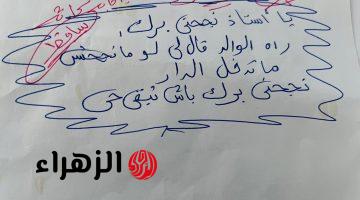 يا أستاذ نجحني برك
راه الوالد قال لي لو مانجحتش
ماتدخل الدار
نجحني برك باش تبقى خي
الزهراء